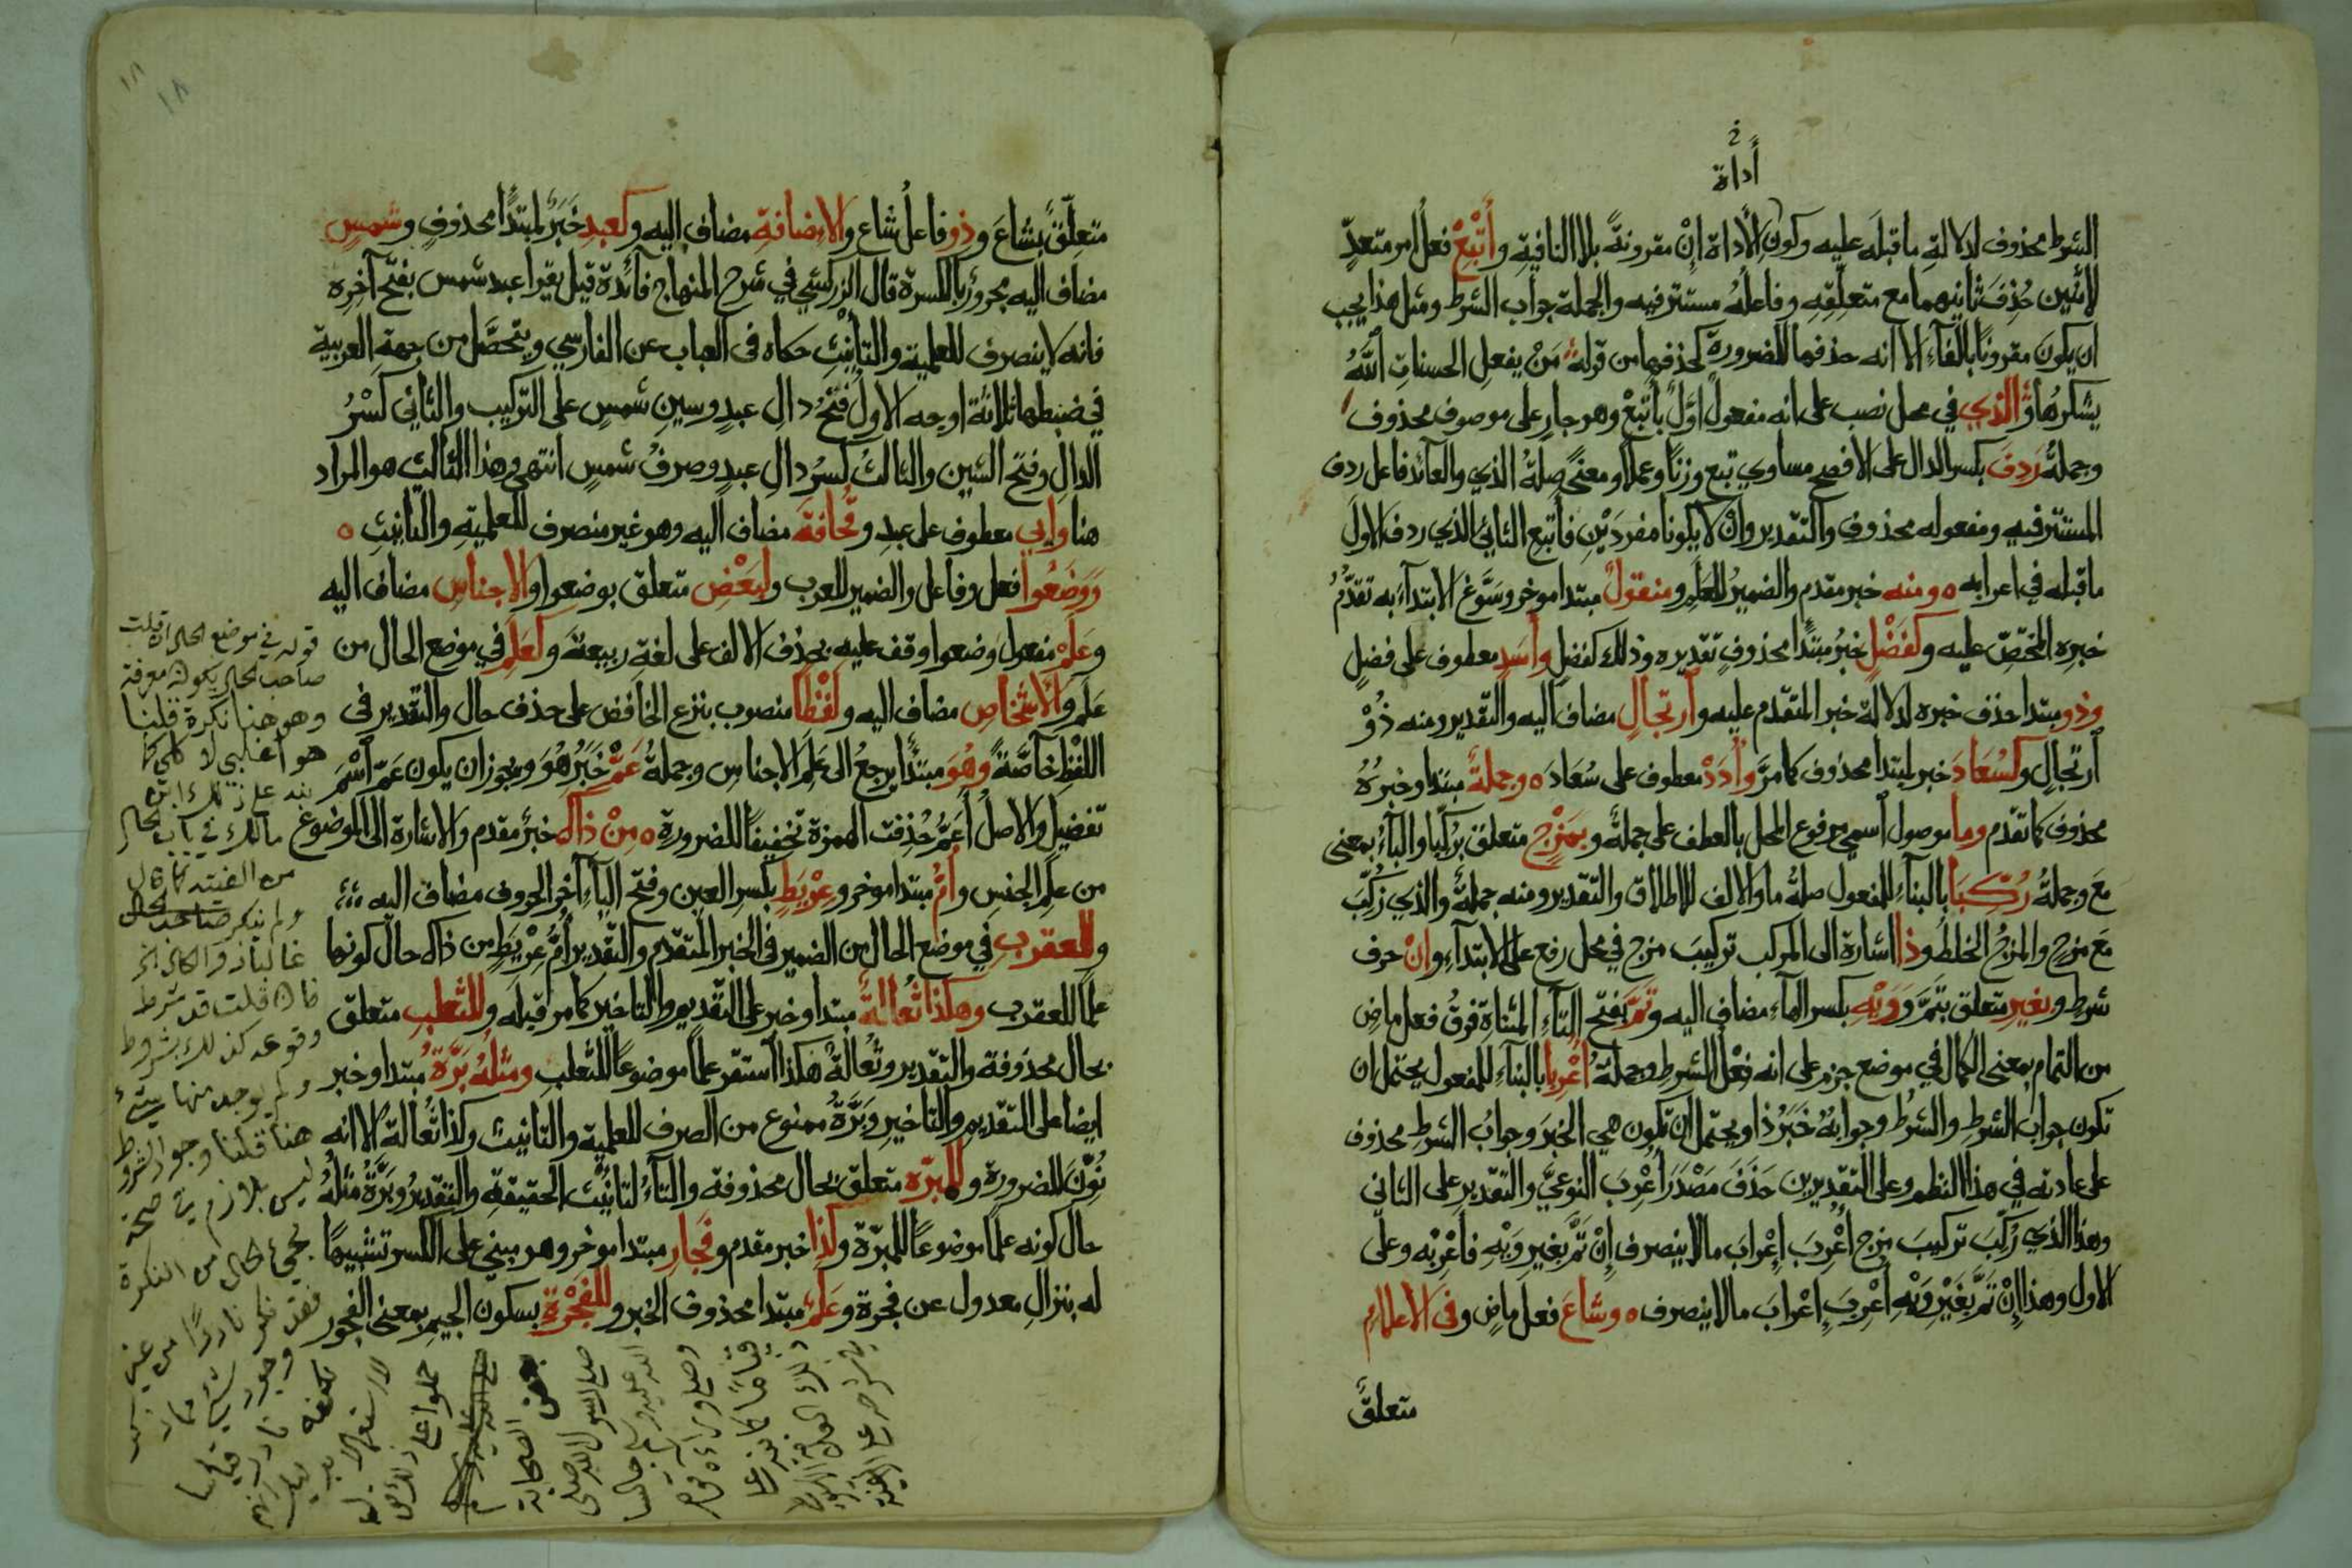 أداة
الشرط محذوف لدلالةِ ما قبلَه عليه وكونِ الأداة إنْ مقرونةً بلا النافيةِ وأَتْبِعْ فعلُ امر متعدٍّ
لاثنين حُذِفَ ثانيهما مع متعلِّقِهِ وفاعلُهُ مستتر فيه والجملة جواب الشرط ومثل هذا يجب
ان يكونَ مقرونًا بالفآء الا انه حذفها للضرورة كحذفها من قوله مَنْ يفعلِ الحسناتِ ٱللّٰهُ
يشكرُها والذي في محل نصب على انه مفعول اوّلٌ بأتبعْ وهو جارٍ على موصوف محذوف
وجملةُ رَدِفَ بكسر الدال على الافصح مساوي تبع وزنًا وعملًا ومعنًى صلةُ الذي والعآئد فاعل ردف
المستتر فيه ومفعوله محذوف والتقدير وانْ لا يكونا مفردَيْنِ فأتبع الثانيَ الذي ردف الاولَ
ما قبله في اعرابه ه ومنه خبر مقدم والضميرُ للعَلَمِ ومنقولٌ مبتدا موخر وسَوَّغ الابتدآءَ به تقدُّمُ
خبرِه المختصِّ عليه وكفَضْلٍ خبرُ مبتدًا محذوفٍ تقديره وذلك كفضلٍ وأسَدٍ معطوف على فضلٍ
وذو مبتدا حذف خبره لدلالة خبر المتقدم عليه وٱرتجالٍ مضاف اليه والتقدير ومنه ذُوْ
ٱرتجالٍ وكسُعَادَ خبر لمبتدا محذوف كما مرَّ وأُدَدْ معطوف على سُعَادَ ه وجملةٌ مبتدا وخبرُهُ
محذوف كما تقدم وما موصول ٱسمي مرفوع المحل بالعطف على جملةٌ وبمَزْجٍ متعلق برُكِّبا والبآءُ بمعنى
مَعَ وجملةُ رُكِّبَا بالبنآء للمفعول صلةُ ما والالف للاطلاق والتقدير ومنه جملةٌ والذي رُكِّبَ
مَعَ مزجٍ والمزجُ الخلطُ وذا اشارة الى المركب تركيبَ مزجٍ في محل رفع على الابتدآءِ وإنْ حرف
شرطٍ وبغيرِ متعلق بتَمَّ ووَيْهِ بكسر الهآءِ مضاف اليه وتَمَّ بفتح التآءِ المثناةِ فوقُ فعل ماضٍ
من التمام بمعنى الكمال في موضع جزمٍ على انه فعْلُ الشرطِ وجملةُ أُعْرِبا بالبنآءِ للمفعول يحتمل ان
تكون جوابَ الشرطِ والشرطُ وجوابُهُ خَبَرُ ذا ويحتمل ان تكون هي الخبرَ وجوابُ الشرطِ محذوف
على عادته في هذا النظم وعلى التقديرين حَذَفَ مَصْدَرَ أُعْرِبَ النوعيَّ والتقدير على الثاني
وهذا الذي رُكِّبَ تركيبَ مزجٍ أُعْرِبَ إعْرابَ ما لا ينصرف إنْ تَمَّ بغيرِ وَيْهِ فأعْرِبْه وعلى
الاول وهذا إنْ تَمَّ بغَيْرِ وَيْهِ أُعْرِبَ إعْرابَ ما لا ينصرف ه وشاعَ فعل ماضٍ وفي الأعلامِ
متعلقٌ
١٨
١٨
متعلِّقٌ بشاعَ وذو فاعلُ شاع والاضافةِ مضاف اليه وكعبدِ خَبَرٌ لمبتدًا محذوفٍ وشمسٍ
مضاف اليه مجرورٌ بالكسرة قال الزركشي في شرح المنهاج فآئدة قيل يقرا عبد شمس بفتح آخرِه
فانه لا ينصرف للعلمية والتأنيثِ حكاه في العباب عن الفارسي ويتحصَّل من جهةِ العربية
في ضبطها ثلاثة اوجه الاول فتحُ دالِ عبدٍ وسينِ شمسٍ على التركيب والثاني كَسْرُ
الدالِ وفتحُ السينِ والثالثُ كسرُ دالِ عبدٍ وصرفُ شمسٍ انتهى وهذا الثالث هو المراد
هنا وابي معطوف على عبدِ وقُحافةَ مضاف اليه وهو غير منصرف للعلمية والتأنيثِ ه
وَوَضَعُوا فعل وفاعل والضمير للعرب ولبَعْضِ متعلق بوضعوا والاجناسِ مضاف اليه
وعَلَمْ مفعول وَضعوا وقف عليه بحذف الالف على لغةِ ربيعةَ وكعَلَمِ في موضع الحال من
عَلَم والأشخاصِ مضاف اليه ولفْظًا منصوب بنزع الخافض على حذف حال والتقدير في
اللفْظِ خآصَّةً وهُوَ مبتدأ يرجعُ الى عَلَمِ الاجناسِ وجملةُ عَمّْ خَبَرُ هُوَ ويجوز ان يكون عَمّ ٱسْمَ
تفضيل والاصلُ أعَمُّ حُذِفت الهمزة تخفيفًا للضرورةِ ه مِنْ ذاك خبرٌ مقدم والاشارة الى الموضوع
من عَلَمِ الجنسِ وأُمُّ مبتدا موخر وعِرْيَطٍ بكسر العين وفتح اليآءِ آخر الحروف مضاف اليه
وللعقربِ في موضع الحال من الضمير في الخبر المتقدم والتقدير أمُّ عِرْيَطٍ من ذاك حالَ كونها
علمًا للعقرب وهكذا ثُعالةٌ مبتدا وخبر على التقديم والتاخير كما مر قبله وللثعلبِ متعلق
بحال محذوفة والتقدير وثُعالةٌ هكذا ٱستقر علمًا موضوعًا للثعلبِ ومثلُهُ بَرَّةُ مبتدا وخبر
ايضا على التقديم والتاخير وبَرَّةُ ممنوع من الصرف للعلمية والتانيث وكذا ثُعالة الا انه
نُوِّنَ للضرورة وللمَبَرّه متعلق بحال محذوفة والتآءُ لتأنيْث الحقيقةِ والتقديرُ وبَرَّةُ مثلُهُ
حال كونه علمًا موضوعًا للمبرّة وكذا خبر مقدم وفَجارِ مبتدا موخر وهو مبني على الكسر تشبيهًا
له بنزالِ معدول عن فجرة وعَلَمٌ مبتدا محذوف الخبر وللفَجْرةِ بسكون الجيم بمعنى الفجور
قوله في موضع الحال ان قلت
صاحب الحال يكون معرفة
وهو هنا نكرة قلنا
هو اغلبي لا كلي كما
مالك في باب الحال
ولم ينكر
غالبا ذو الحال الخ
فان قلت قد شرط
وقوعه كذلك بشروط
ولم يوجد منها شيء
هنا قلنا وجود الشروط
ليس بلازم في صحة
مجيء الحال من النكرة